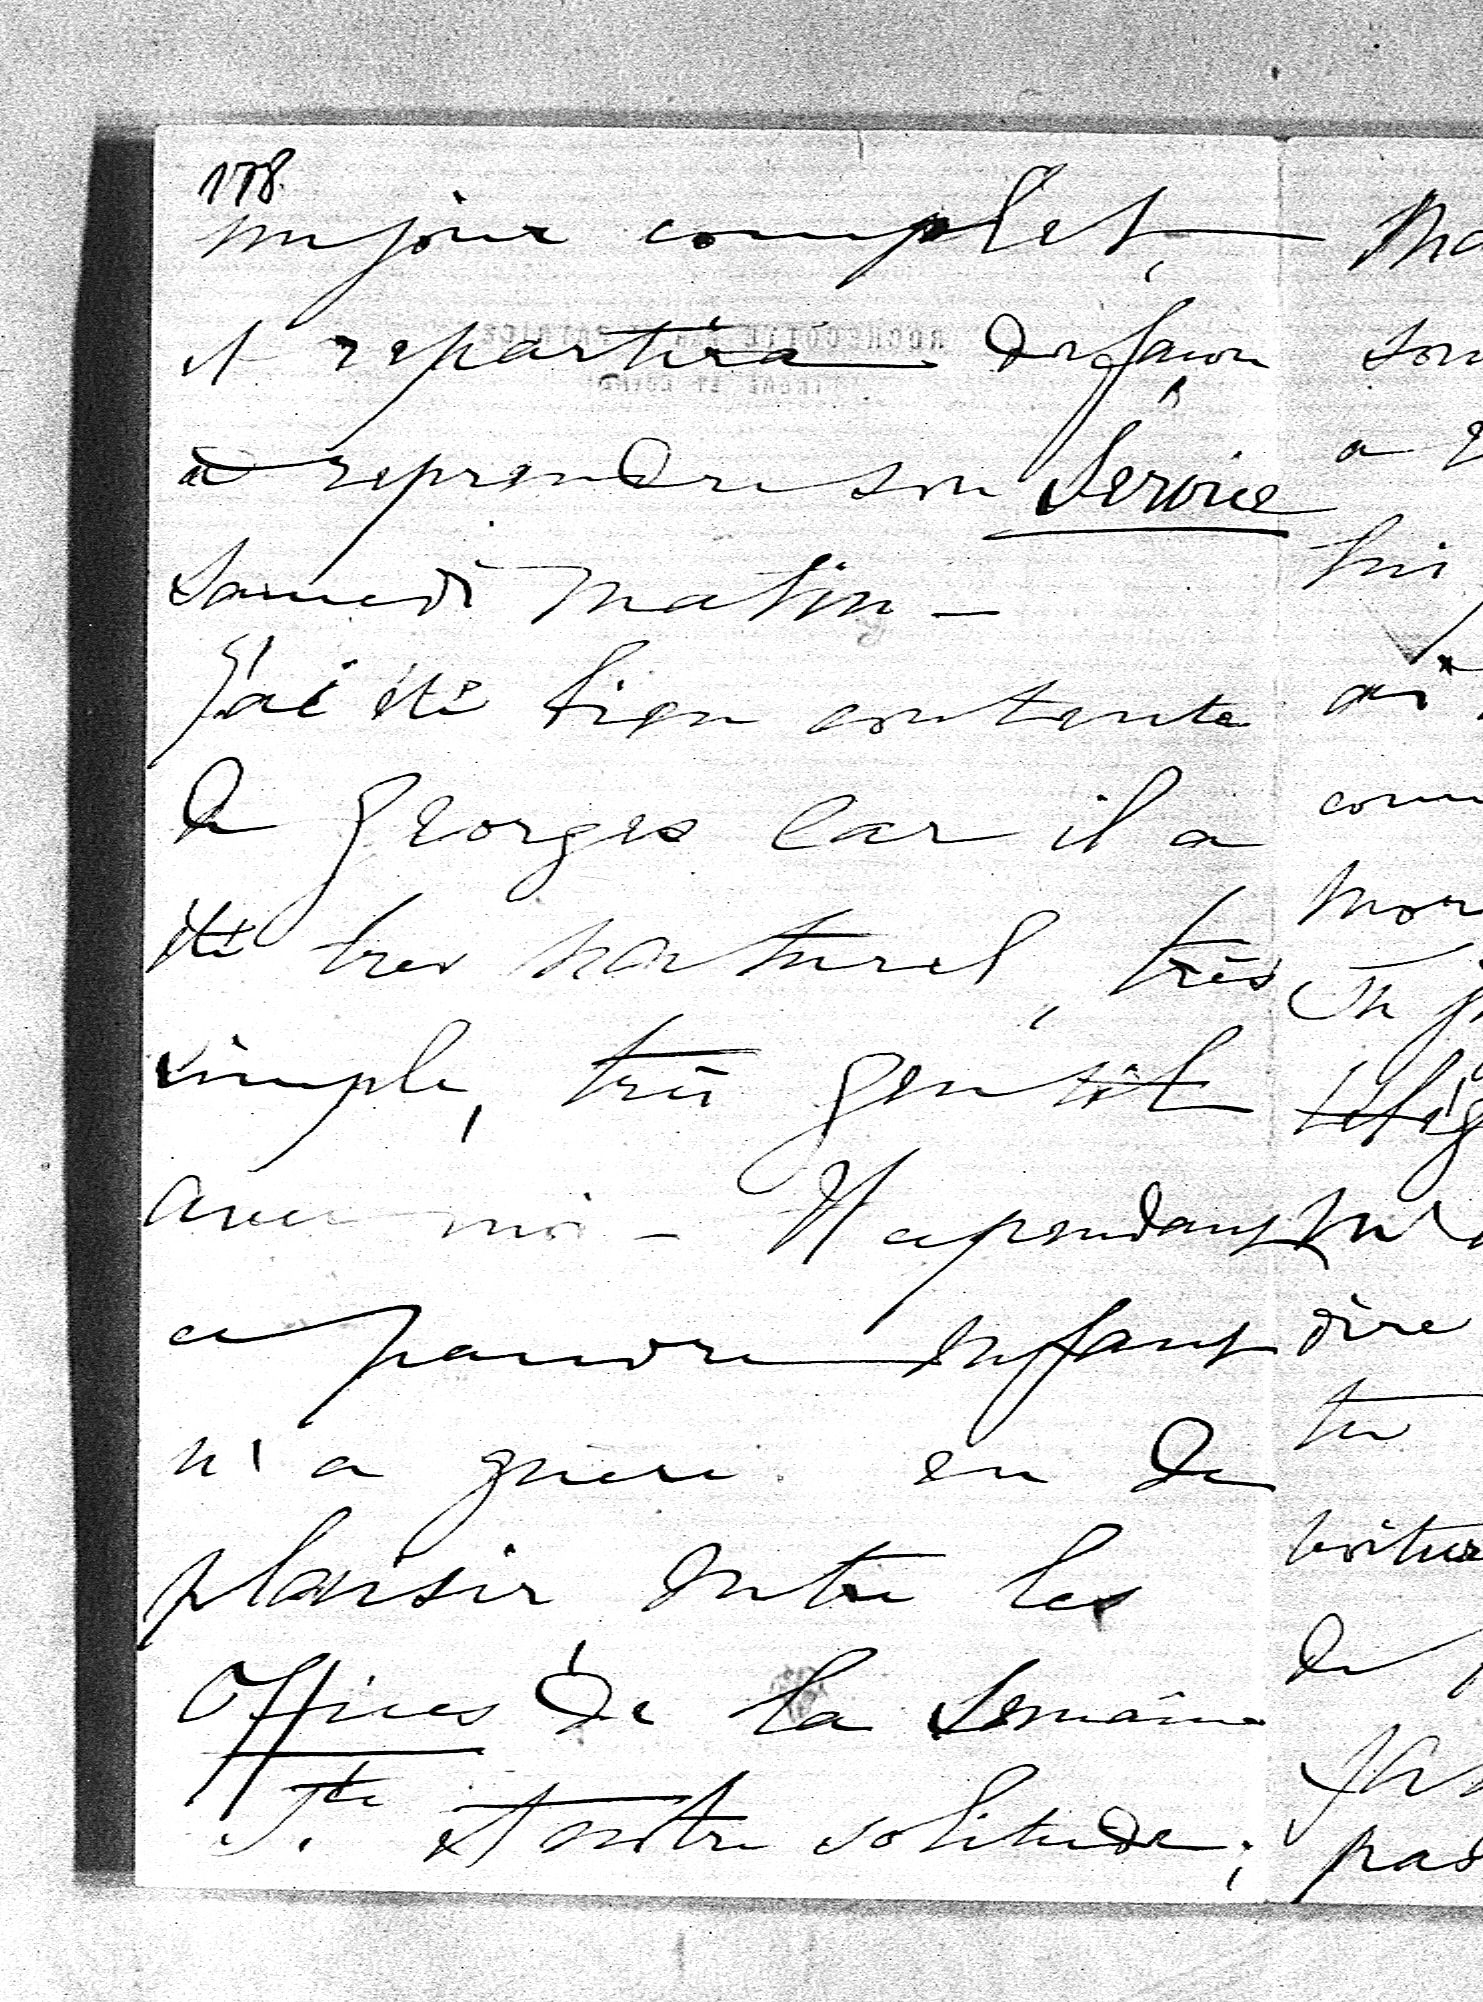 178.
un jour complet,
et repartira de façon
à reprendre son Service
Samedi matin -
J'ai été bien contente
de Georges car il a
été très naturel, très
simple, très gentil
avec moi - Et cependant
ce pauvre enfant
n'a guère eu de
plaisir entre les
Offices de la Semaine
Ste et notre solitude;
son
a
lui
ai
dire
tu
voiture
de
pas